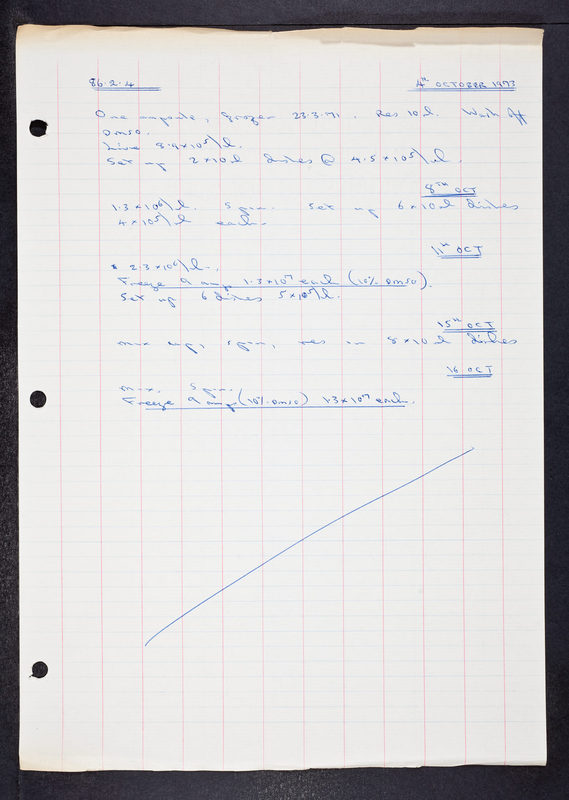 86.2.4
4th OCTOBER 1973
One ampoule, frozen 23.3.71. Res 10 l. Wash off
DMSO.
Live 8.9x10⁵/l.
Set up 2x10 l dishes @ 4.5x10⁵/l.
8TH OCT
1.3x10⁶/l. Spun. Set up 6x10 l dishes
4x10⁵/l each.
11th OCT
2.3x10⁶/l.
Freeze 9 amp 1.3x10⁷ each (10% DMSO).
Set up 6 dishes 5x10⁵/l.
15th OCT
mix up, spun, res in 8x10 l dishes
16 OCT
Spun.
Freeze 9 amp (10% DMSO) 1.3x10⁷ each.